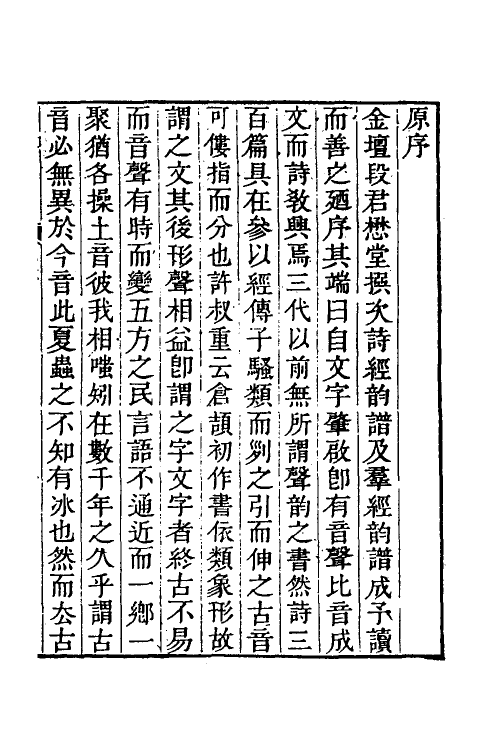 原序
金壇段君懋堂撰次詩經韵譜及羣經韵譜成予讀
而善之廼序其端曰自文字肇啟卽有音聲比音成
文而詩敎興焉三代以前無所謂聲韵之書然詩三
百篇具在參以經傳子騷類而剡之引而伸之古音
可僂指而分也許叔重云倉頡初作書依類象形故
謂之文其後形聲相益卽謂之字文字者終古不易
而音聲有時而變五方之民言語不通近而一鄉一
聚猶各操土音彼我相嗤矧在數千年之久乎謂古
音必無異於今音此夏蟲之不知有冰也然而去古